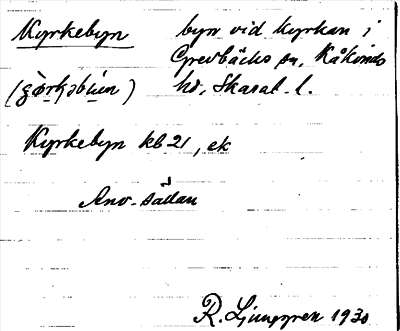 Kyrkebyn byn vid kyrkan i
Grevbäcks sn, Kåkinds
hd, Skarab. l.
Kyrkebyn kb 21, ek
Anv. sällan
R. Ljunggren 1930